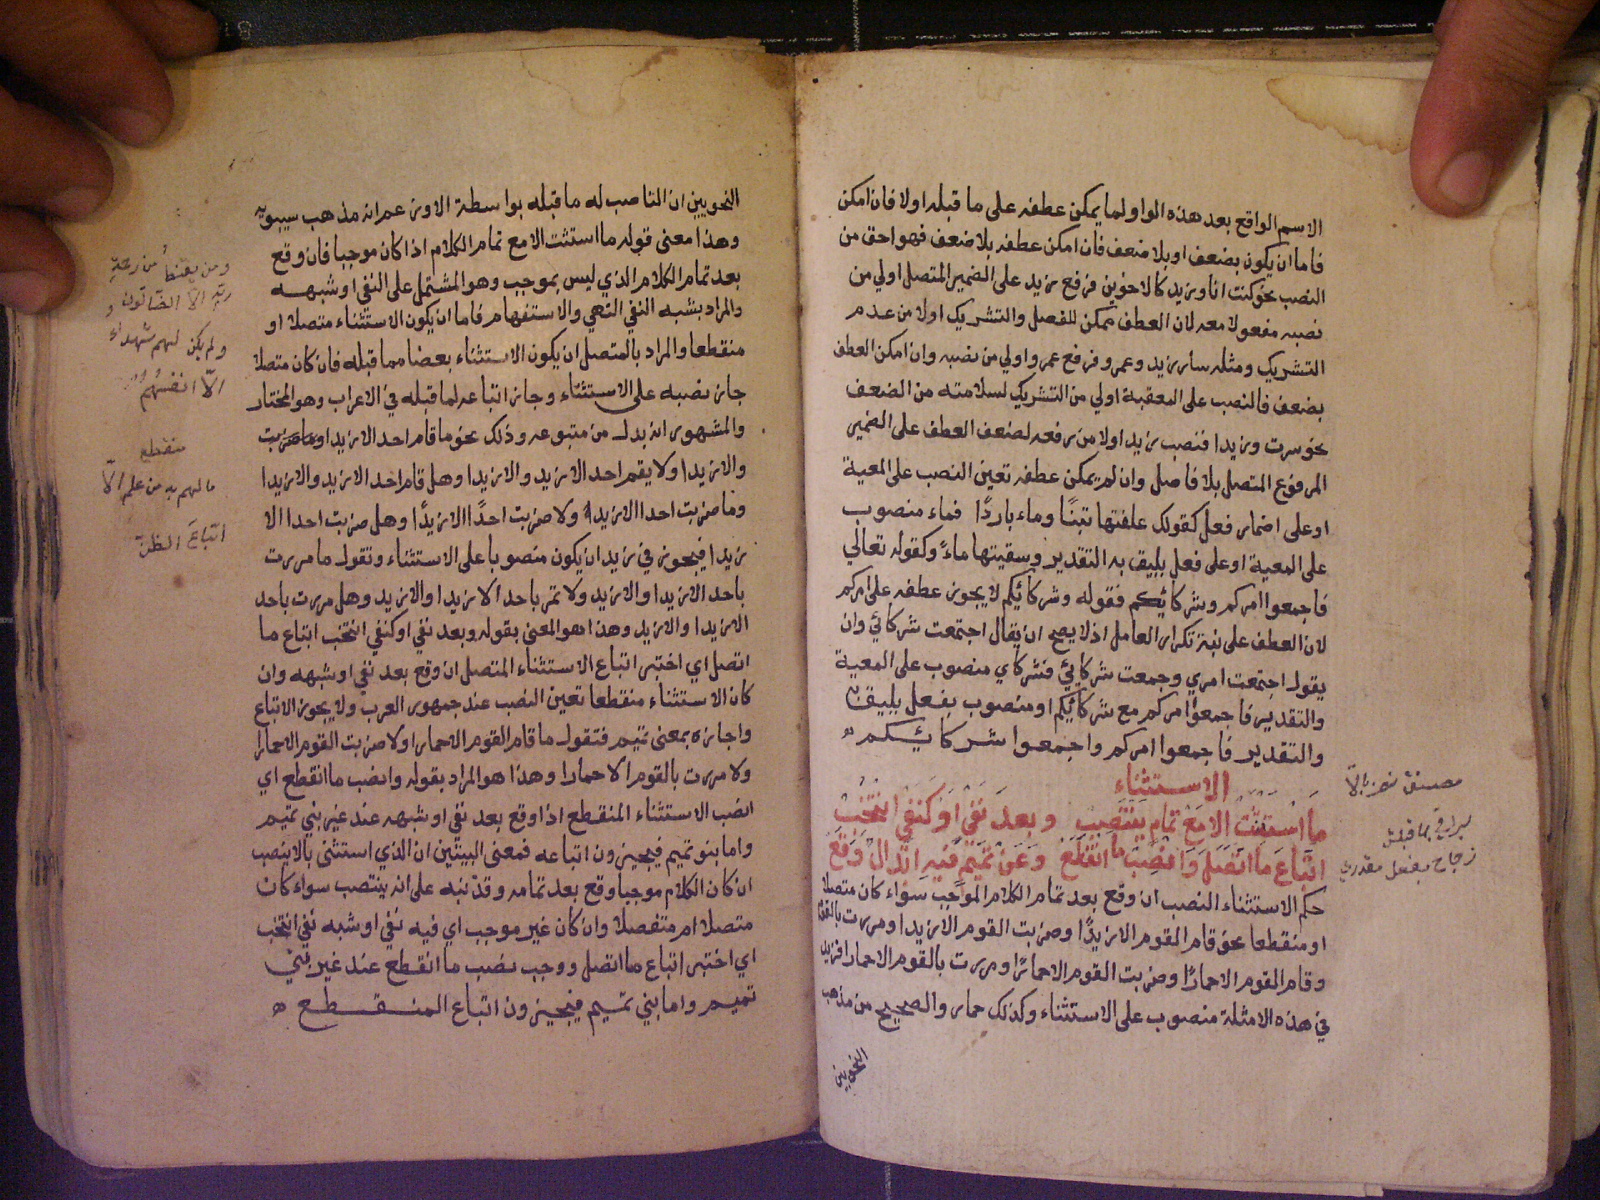 الاسم الواقع بعد هذه الواو لما يمكن عطفه على ما قبله اولا فان امكن
فاما ان يكون بضعف او بلا ضعف فان امكن عطفه بلا ضعف فهو احق من
النصب نحو كنت انا وزيد كالاخوين فرفع زيد على الضمير المتصل اولي من
نصبه مفعولا معه لان العطف ممكن للفصل والتشريك اولا من عدم
التشريك ومثله سار زيد وعمرو فرفع عمرو اولي من نصبه وان امكن العطف
بضعف فالنصب على المعية اولي من التشريك لسلامته من الضعف
نحو سرت وزيدا فنصب زيد اولا من رفعه لضعف العطف على الضمير
المرفوع المتصل بلا فاصل وان لم يمكن عطفه تعين النصب على المعية
او على اضمار فعل كقولك علفتها تبنًا وماء باردًا فماء منصوب
على المعية او على فعل يليق به التقدير وسقيتها ماءً وكقوله تعالي
فاجمعوا امركم وشركائكم فقوله وشركائكم لا يجوز عطفه على امركم
لان العطف على نية تكرار العامل اذ لا يصح ان يقال اجتمعت شركائي وان
يقول اجتمعت امري وجمعت شركائي فشركاي منصوب على المعية
والتقدير فاجمعوا امركم مع شركائكم او منصوب بفعل يليق به
والتقدير فاجمعوا امركم واجمعوا شركائكم
الاستثناء
ما استثنت الا مع تمام ينتصب وبعد نفي او كنفي انتخب
اتباع ما اتصل وانصب ما انقطع وعن تميم فيه ابدال وقع
حكم الاستثناء النصب ان وقع بعد تمام الكلام الموجب سواء كان متصلا
او منقطعا نحو قام القوم الا زيدًا وضربت القوم الا زيدا ومررت بالقوم
وقام القوم الا حمارًا وضربت القوم الا حمارًا ومررت بالقوم الا حمارا فزيد
في هذه الامثلة منصوب على الاستثناء وكذلك حمار والصحيح من مذهب
النحويين
بما قبله
زجاج بفعل مقدر
النحويين ان الناصب له ما قبله بواسطة الا وزعم انه مذهب سيبويه
وهذا معنى قوله ما استثت الا مع تمام الكلام اذا كان موجبا فان وقع
بعد تمام الكلام الذي ليس بموجب وهو المشتمل على النفي او شبهه
والمراد بشبه النفي النهي والاستفهام فاما ان يكون الاستثناء متصلا او
منقطعا والمراد بالمتصل ان يكون الاستثناء بعضا مما قبله فان كان متصلا
جاز نصبه على الاستثناء وجاز اتباعه لما قبله في الاعراب وهو المختار
والمشهور انه بدل من متبوعه وذلك نحو ما قام احد الا زيدا
والا زيد ولا يقم احد الا زيد والا زيدا وهل قام احد الا زيد والا زيدا
وما ضربت احدا الا زيدا ولا ضربت احدًا الا زيدًا وهل ضربت احدا الا
زيدا فيجوز في زيد ان يكون منصوبا على الاستثناء وتقول ما مررت
باحد الا زيدا والا زيد ولا تمر باحد الا زيدا والا زيد وهل مررت باحد
الا زيدا والا زيد وهذا هو المعنى بقوله وبعد نفي او كنفي انتخب اتباع ما
اتصل اي اختير اتباع الاستثناء المتصل ان وقع بعد نفي او شبهه وان
كان الاستثناء منقطعا تعين النصب عند جمهور العرب ولا يجوز الاتباع
واجازه بمعنى تميم فتقول ما قام القوم الا حمارا ولا ضربت القوم الا حمارا
ولا مررت بالقوم الا حمارا وهذا هو المراد بقوله وانصب ما انقطع اي
انصب الاستثناء المنقطع اذا وقع بعد نفي او شبهه عند غير بني تميم
واما بنو تميم فيجيزون اتباعه فمعنى البيتين ان الذي استثنى بالا ينصب
ان كان الكلام موجبا وقع بعد تمامه وقد نبه على انه ينتصب سواء كان
متصلا ام منفصلا وان كان غير موجب اي فيه نفي او شبه نفي انتخب
اي اختير اتباع ما اتصل ووجب نصب ما انقطع عند غير بني
تميم واما بني تميم فيجيزون اتباع المنقطع
ومن يقنط من رحمة
ربه الا الضالون و
ولم يكن لهم شهداء
الّا انفسهم
منقطع
ما لهم به من علم الّا
اتباعَ الظن